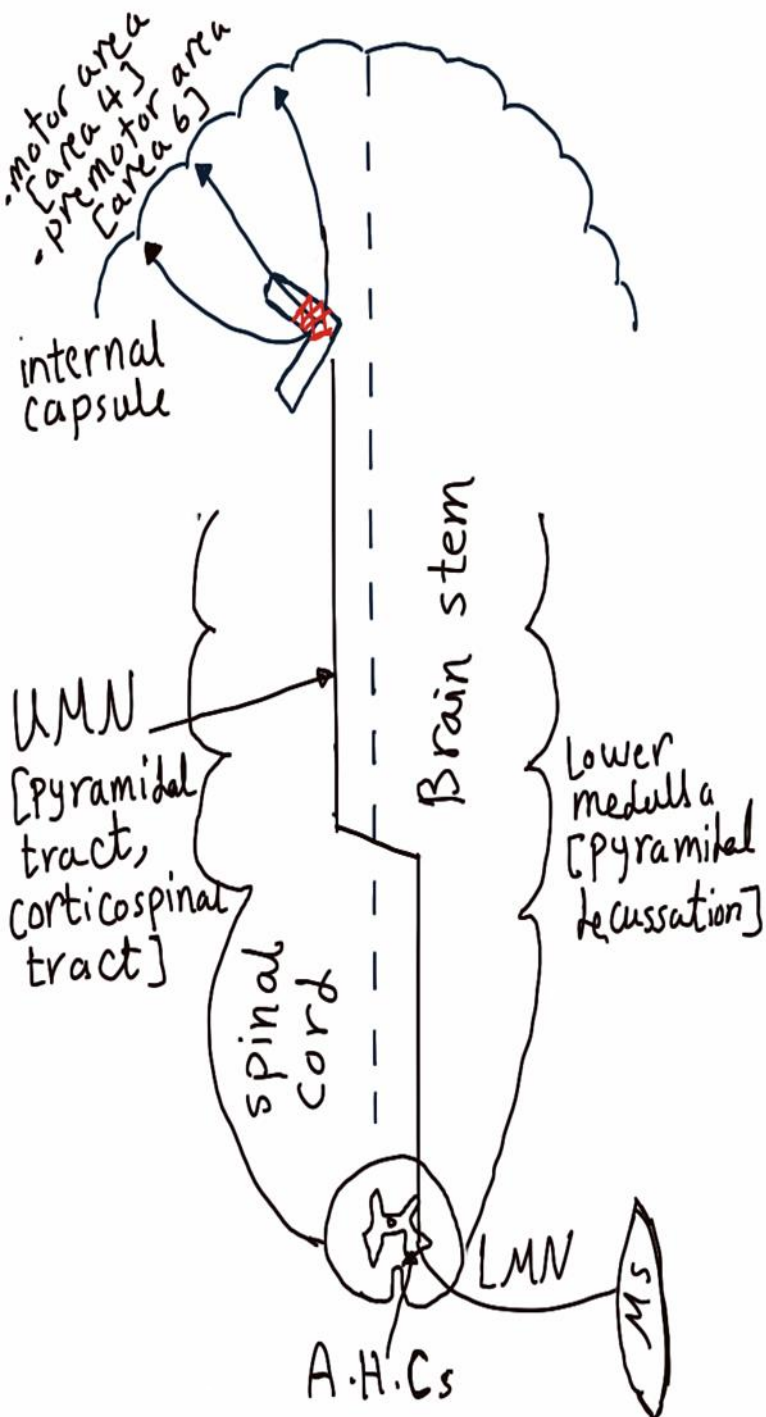 .motor area
[area 4]
. premotor area
[area 6]
internal
capsule
Brain stem
UMN
[pyramidal
tract,
corticospinal
tract]
Lower
medulla
[pyramidal
decussation]
spinal
cord
LMN
Ms
A.H.Cs